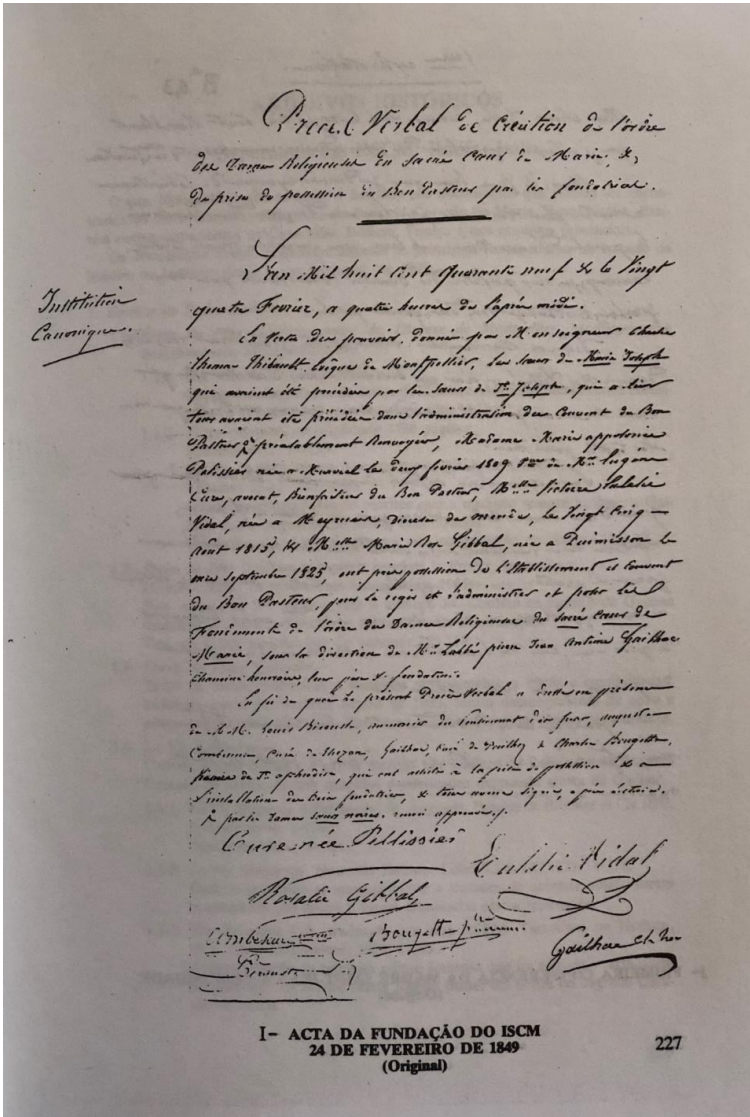 Procès Verbal de Création de l'ordre
des Dames Religieuses du Sacré Cœur de Marie, &
de prise de possession du Bon Pasteur par les fondatrices.
Institution
Canonique.
L'an Mil huit cent quarante neuf & le Vingt
quatre Fevrier, a quatre heures de l'après midi.
En vertu des pouvoirs donnés par Monseigneur Charles
Thomas Thibault Evêque de Montpellier, les sœurs de Marie Joseph
qui avaient été précédées par les sœurs de St. Joseph, qui a leur
tour avaient été précédées dans l'administration du Couvent du Bon
Pasteur préalablement Renvoyées, Madame Marie appolonie
Pelissier née a Murviel les deux fevrier 1809 de Mr. Eugène
Cure, avocat, Bienfaiteur du Bon Pasteur, Melle Victoire Eulalie
Vidal, née a Meyrueis, Diocese de Mende, le Vingt Cinq
Août 1815, & Melle Marie Rose Gibbal, née a Puimisson le
septembre 1825, ont pris possession de l'Etablissement et couvent
du Bon Pasteur, pour le regir et l'administrer et poser les
Fondements de l'ordre des Dames Religieuses du Sacré Cœur de
Marie, sous la direction de Mr. l'abbé pierre Jean Antoine Gailhac
Chanoine honoraire, leur père & fondateur.
En foi de quoi Le présent Procès Verbal a été en présence
de M.M. Louis Bicouste, aumonier du, auguste
, Curé de, Gailhac, Curé de & Charles Bougette,
Vicaire de St. aphrodise, qui ont assisté à la prise de possession & a
l'installation des trois fondatrices, & tous avons signé,
 par les Dames sœurs noires. renvoi approuvé.
Cure née Pellissier
Eulalie Vidal
Rosalie Gibbal
Bougette
Gailhac
Bicouste
I– ACTA DA FUNDAÇÃO DO ISCM
24 DE FEVEREIRO DE 1849
(Original)
227